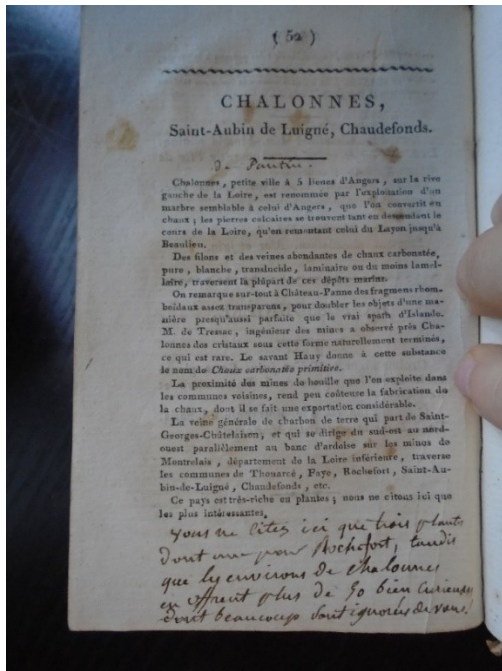 ( 52 )
CHALONNES,
Saint-Aubin de Luigné, Chaudefonds.
de Pantin.
Chalonnes, petite ville à 5 lieues d'Angers, sur la rive
gauche de la Loire, est renommée par l'exploitation d'un
marbre semblable à celui d'Angers, que l'on convertit en
chaux; les pierres calcaires se trouvent tant en descendant le
cours de la Loire, qu'en remontant celui du Layon jusqu'à
Beaulieu.
Des filons et des veines abondantes de chaux carbonatée,
pure, blanche, translucide, laminaire ou du moins lamel-
loire, traversent la plûpart de ces dépôts marins.
On remarque sur-tout à Château-Panne des fragmens rhom-
boïdaux assez transparens, pour doubler les objets d'une ma-
nière presqu'aussi parfaite que le vrai spath d'Islande.
M. de Tressac, ingénieur des mines a observé près Cha-
lonnes des cristaux sous cette forme naturellement terminés,
ce qui est rare. Le savant Hauy donne à cette substance
le nom de Chaux carbonatée primitive.
La proximité des mines de houille que l'on exploite dans
les communes voisines, rend peu coûteuse la fabrication de
la chaux, dont il se fait une exportation considérable.
La veine générale de charbon de terre qui part de Saint-
Georges-Châtelaison, et qui se dirige du sud-est au nord-
ouest parallèlement au banc d'ardoise sur les mines de
Montrelais, département de la Loire inférieure, traverse
les communes de Thouarcé, Faye, Rochefort, Saint-Au-
bin-de-Luigné, Chaudefonds, etc.
Ce pays est très-riche en plantes; nous ne citons ici que
les plus intéressantes.
vous ne citez ici que trois plants
dont une pour Rochefort, tandis
que les environs de chalonnes
en offrent plus de 50 bien curieuses
dont beaucoup sont ignorées de vous.